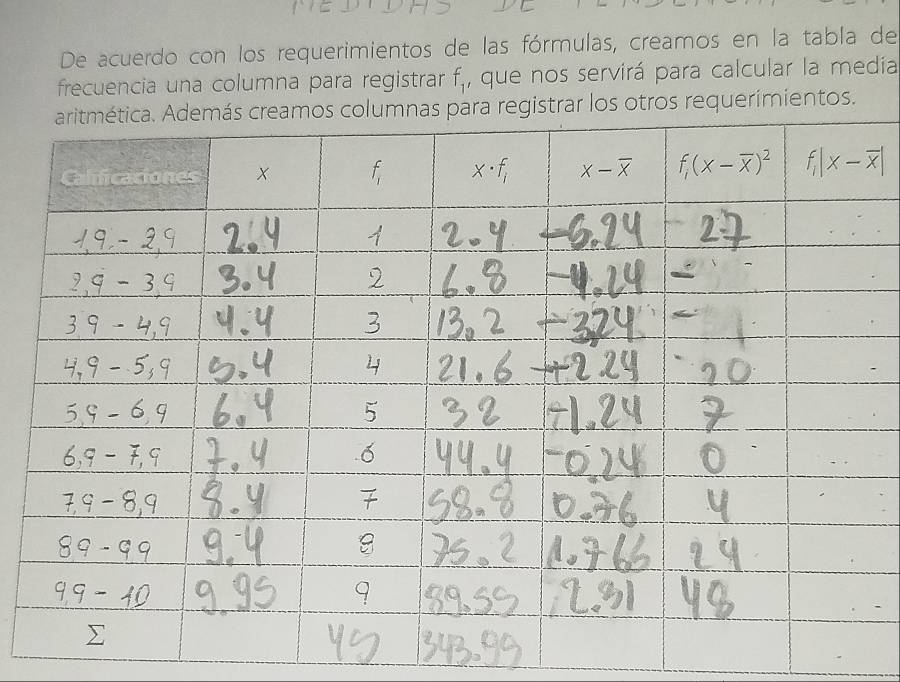 MEDIDAS DE TENDENCIA
De acuerdo con los requerimientos de las fórmulas, creamos en la tabla de
frecuencia una columna para registrar f₁, que nos servirá para calcular la media
aritmética. Además creamos columnas para registrar los otros requerimientos.
Calificaciones x fᵢ x·fᵢ x − x̅ fᵢ(x − x̅)² fᵢ|x − x̅|
1,9 - 2,9 2.4 1 2.4 -5.24 27
2,9 - 3,9 3.4 2 6.8 -4.24 -
3,9 - 4,9 4.4 3 13.2 -3.24 -
4,9 - 5,9 5.4 4 21.6 -2.24 20
5,9 - 6,9 6.4 5 32 -1.24 7
6,9 - 7,9 7.4 6 44.4 -0.24 0
7,9 - 8,9 8.4 7 58.8 0.76 4
8,9 - 9,9 9.4 8 75.2 1.766 24
9,9 - 10 9.95 9 89.55 2.31 48
Σ 45 343.99